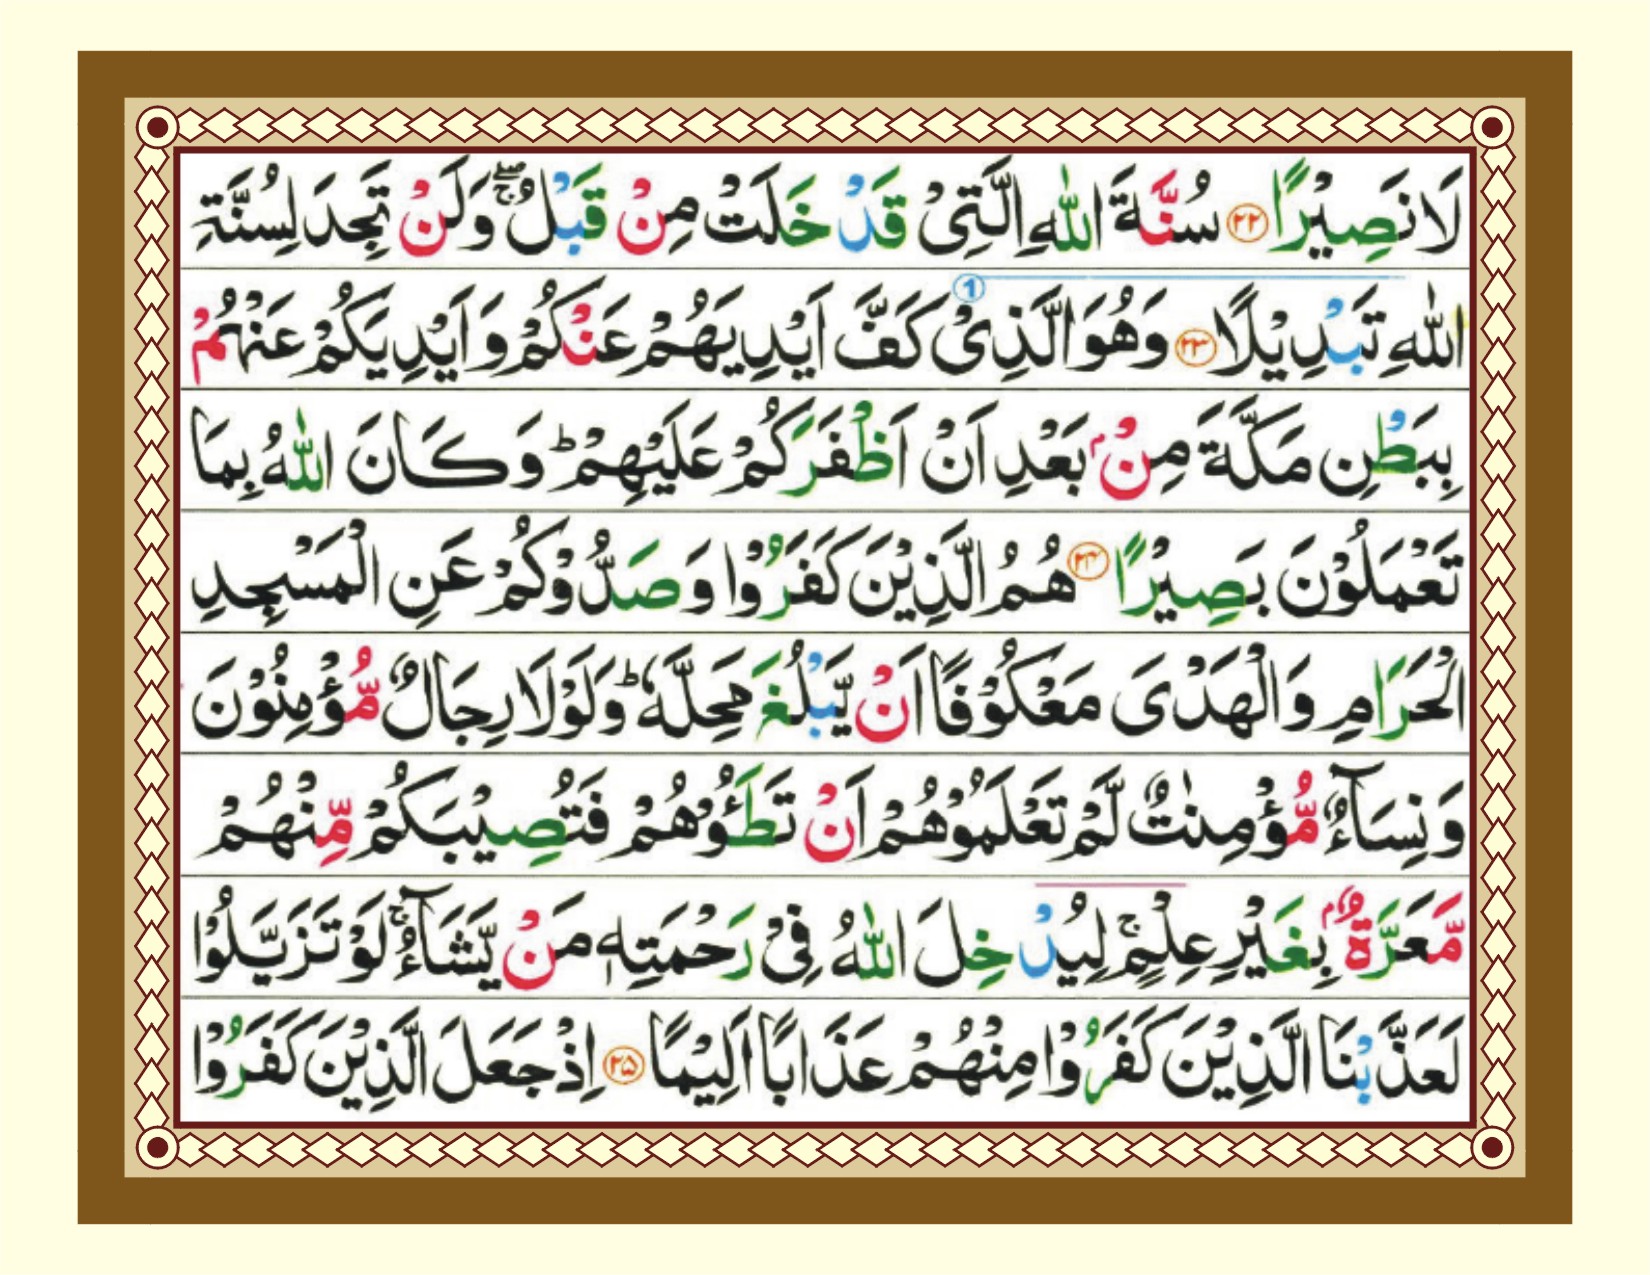 لَا نَصِيْرًا ﴿۲۲﴾ سُنَّةَ اللّٰهِ الَّتِىْ قَدْ خَلَتْ مِنْ قَبْلُ ۖۚ وَلَنْ تَجِدَ لِسُنَّةِ
اللّٰهِ تَبْدِيْلًا ﴿۲۳﴾ وَهُوَ الَّذِىْ كَفَّ اَيْدِيَهُمْ عَنْكُمْ وَاَيْدِيَكُمْ عَنْهُمْ ①
بِبَطْنِ مَكَّةَ مِنْۢ بَعْدِ اَنْ اَظْفَرَكُمْ عَلَيْهِمْ ؕ وَكَانَ اللّٰهُ بِمَا
تَعْمَلُوْنَ بَصِيْرًا ﴿۲۴﴾ هُمُ الَّذِيْنَ كَفَرُوْا وَصَدُّوْكُمْ عَنِ الْمَسْجِدِ
الْحَرَامِ وَالْهَدْىَ مَعْكُوْفًا اَنْ يَّبْلُغَ مَحِلَّهٗ ؕ وَلَوْلَا رِجَالٌ مُّؤْمِنُوْنَ
وَنِسَآءٌ مُّؤْمِنٰتٌ لَّمْ تَعْلَمُوْهُمْ اَنْ تَطَـُٔوْهُمْ فَتُصِيْبَكُمْ مِّنْهُمْ
مَّعَرَّةٌۢ بِغَيْرِ عِلْمٍ ۚ لِيُدْخِلَ اللّٰهُ فِىْ رَحْمَتِهٖ مَنْ يَّشَآءُ ۚ لَوْ تَزَيَّلُوْا
لَعَذَّبْنَا الَّذِيْنَ كَفَرُوْا مِنْهُمْ عَذَابًا اَلِيْمًا ﴿۲۵﴾ اِذْ جَعَلَ الَّذِيْنَ كَفَرُوْا